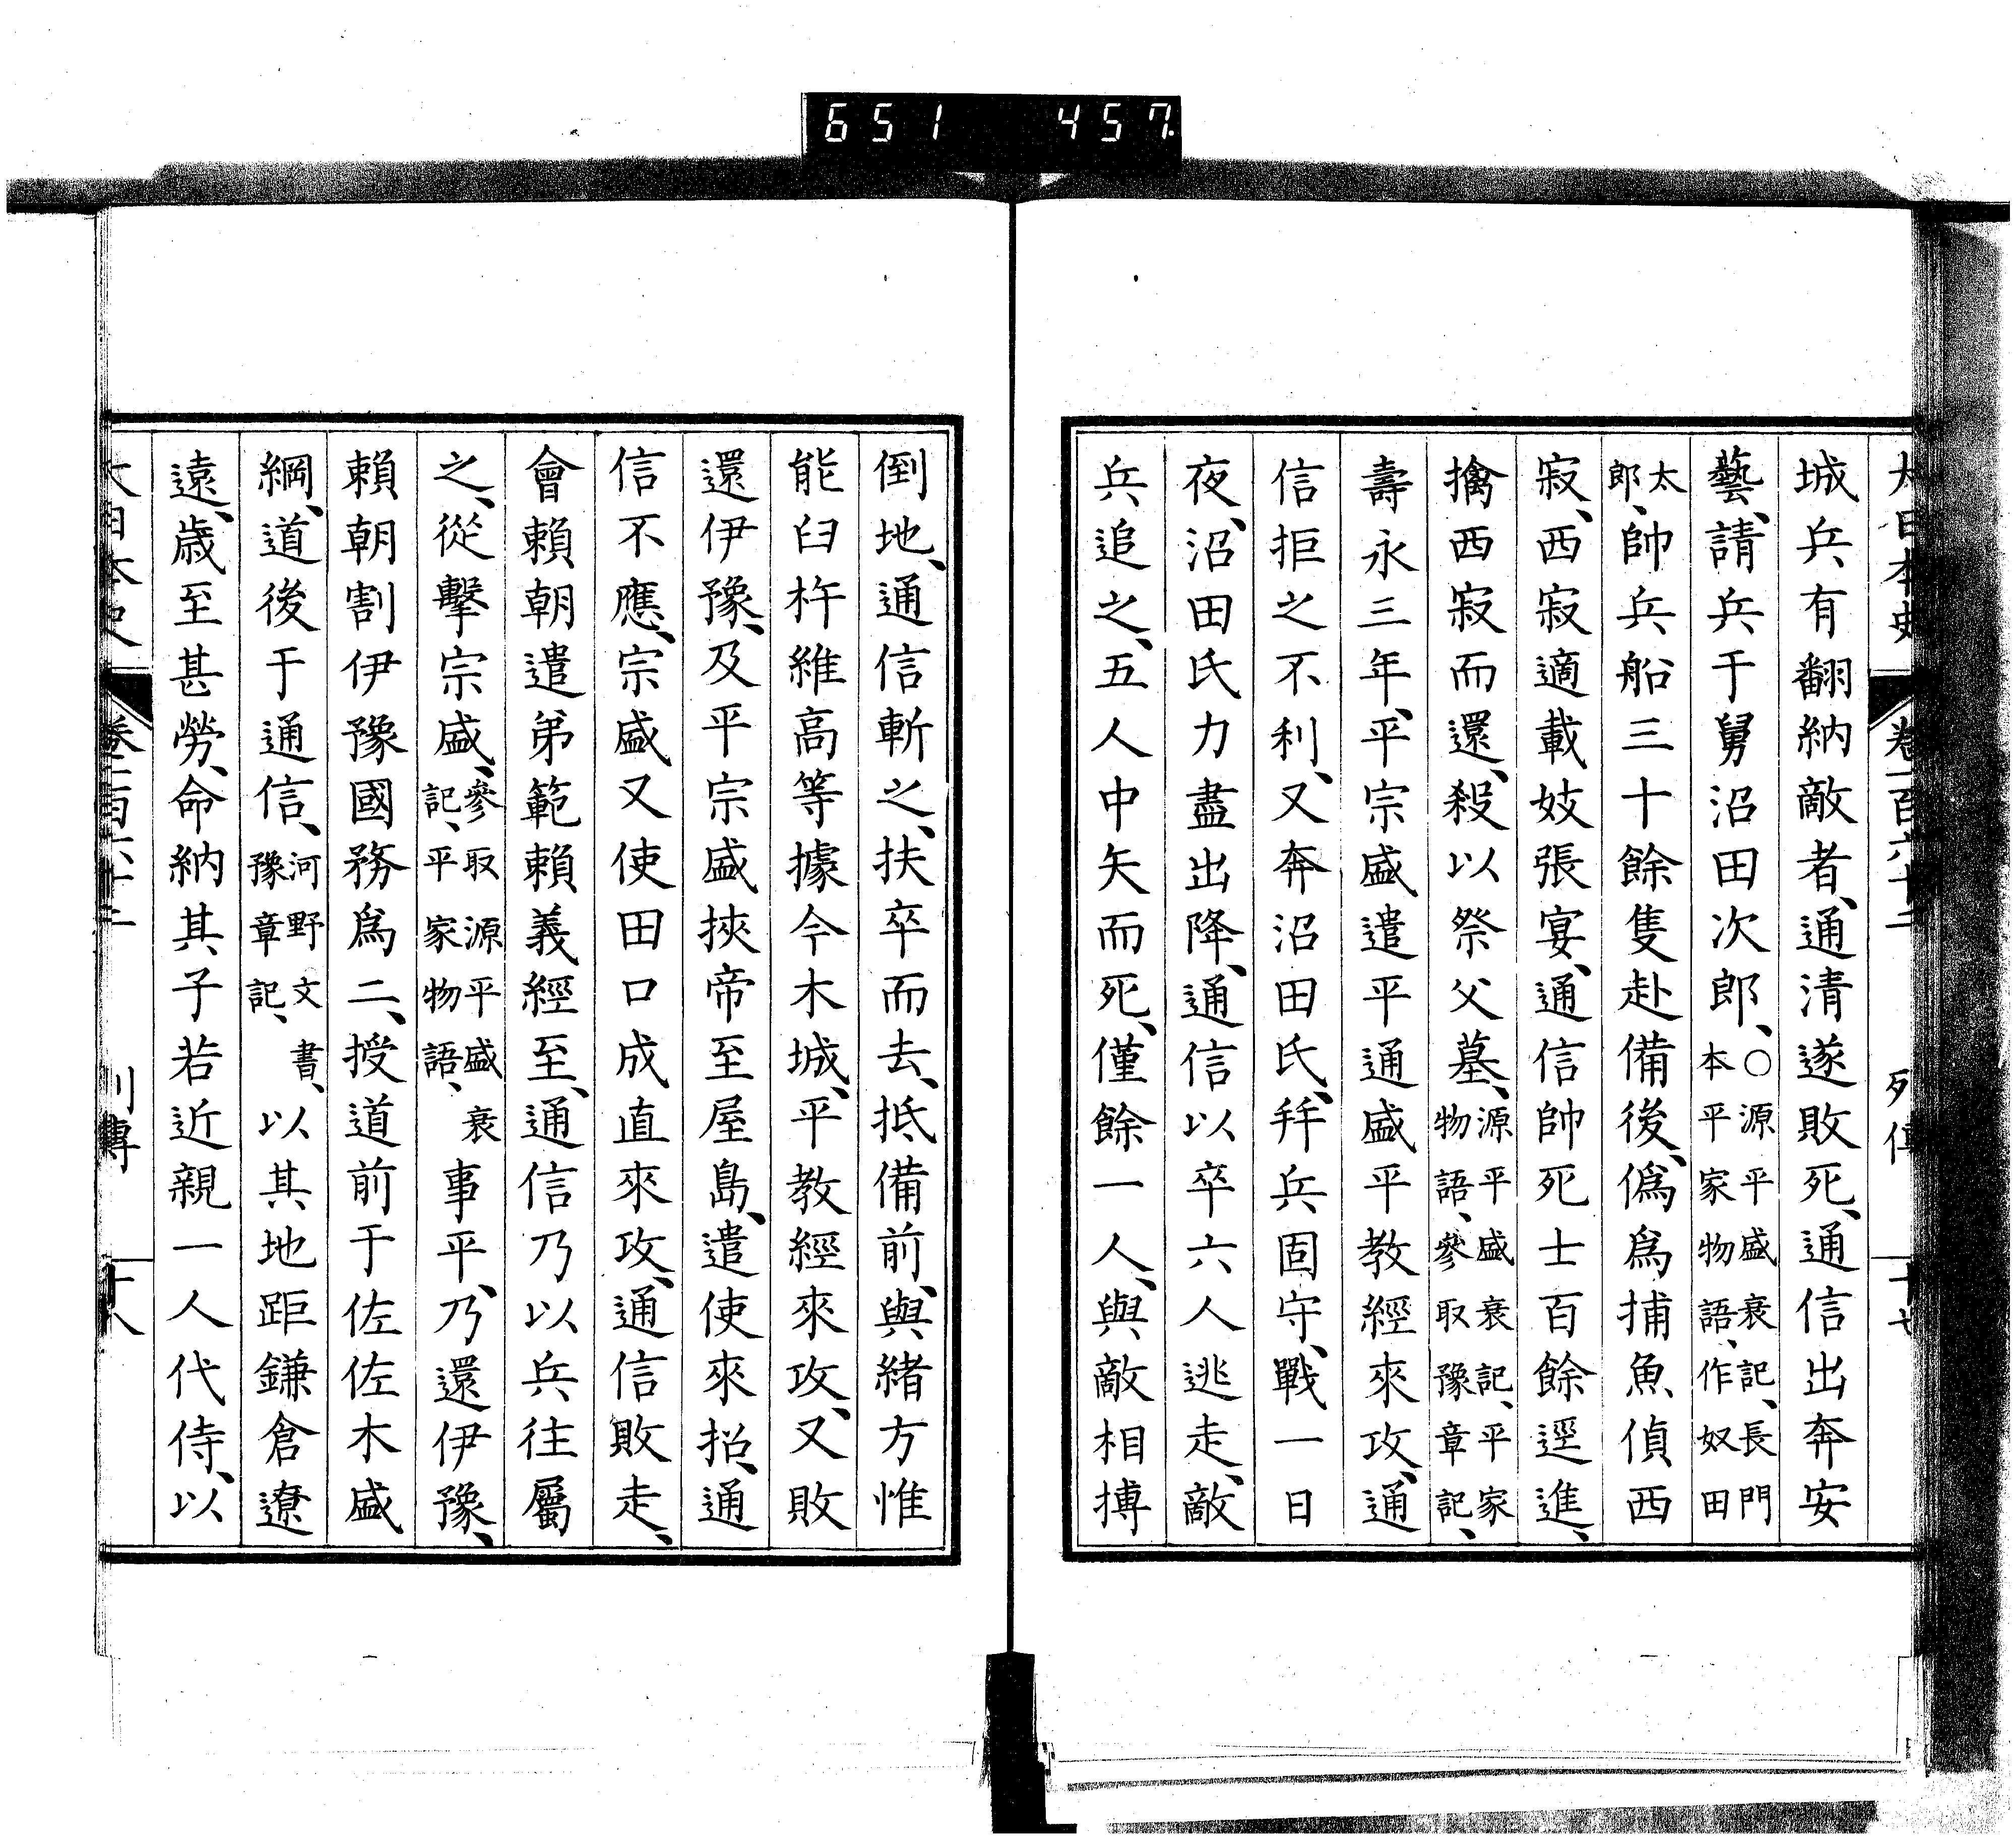 651 457
大日本史 卷一百六十二 列傳 十七
城兵有翻納敵者、通清遂敗死、通信出奔安
藝、請兵于舅沼田次郎、○源平盛衰記、長門本平家物語、作奴田
太郎、帥兵船三十餘隻赴備後、僞爲捕魚偵西
寂、西寂適載妓張宴、通信帥死士百餘逕進、
擒西寂而還、殺以祭父墓、源平盛衰記、平家物語、參取豫章記、
壽永三年、平宗盛遣平通盛平教經來攻、通
信拒之不利、又奔沼田氏、幷兵固守、戰一日
夜、沼田氏力盡出降、通信以卒六人逃走、敵
兵追之、五人中矢而死、僅餘一人、與敵相搏
倒地、通信斬之、扶卒而去、抵備前、與緒方惟
能臼杵維高等據今木城、平教經來攻、又敗
還伊豫、及平宗盛挾帝至屋島、遣使來招、通
信不應、宗盛又使田口成直來攻、通信敗走、
會賴朝遣弟範賴義經至、通信乃以兵往屬
之、從擊宗盛、參取源平盛衰記、平家物語、事平、乃還伊豫、
賴朝割伊豫國務爲二、授道前于佐佐木盛
綱、道後于通信、河野文書、豫章記、以其地距鎌倉遼
遠、歲至甚勞、命納其子若近親一人代侍、以
大日本史 卷一百六十二 列傳 十八